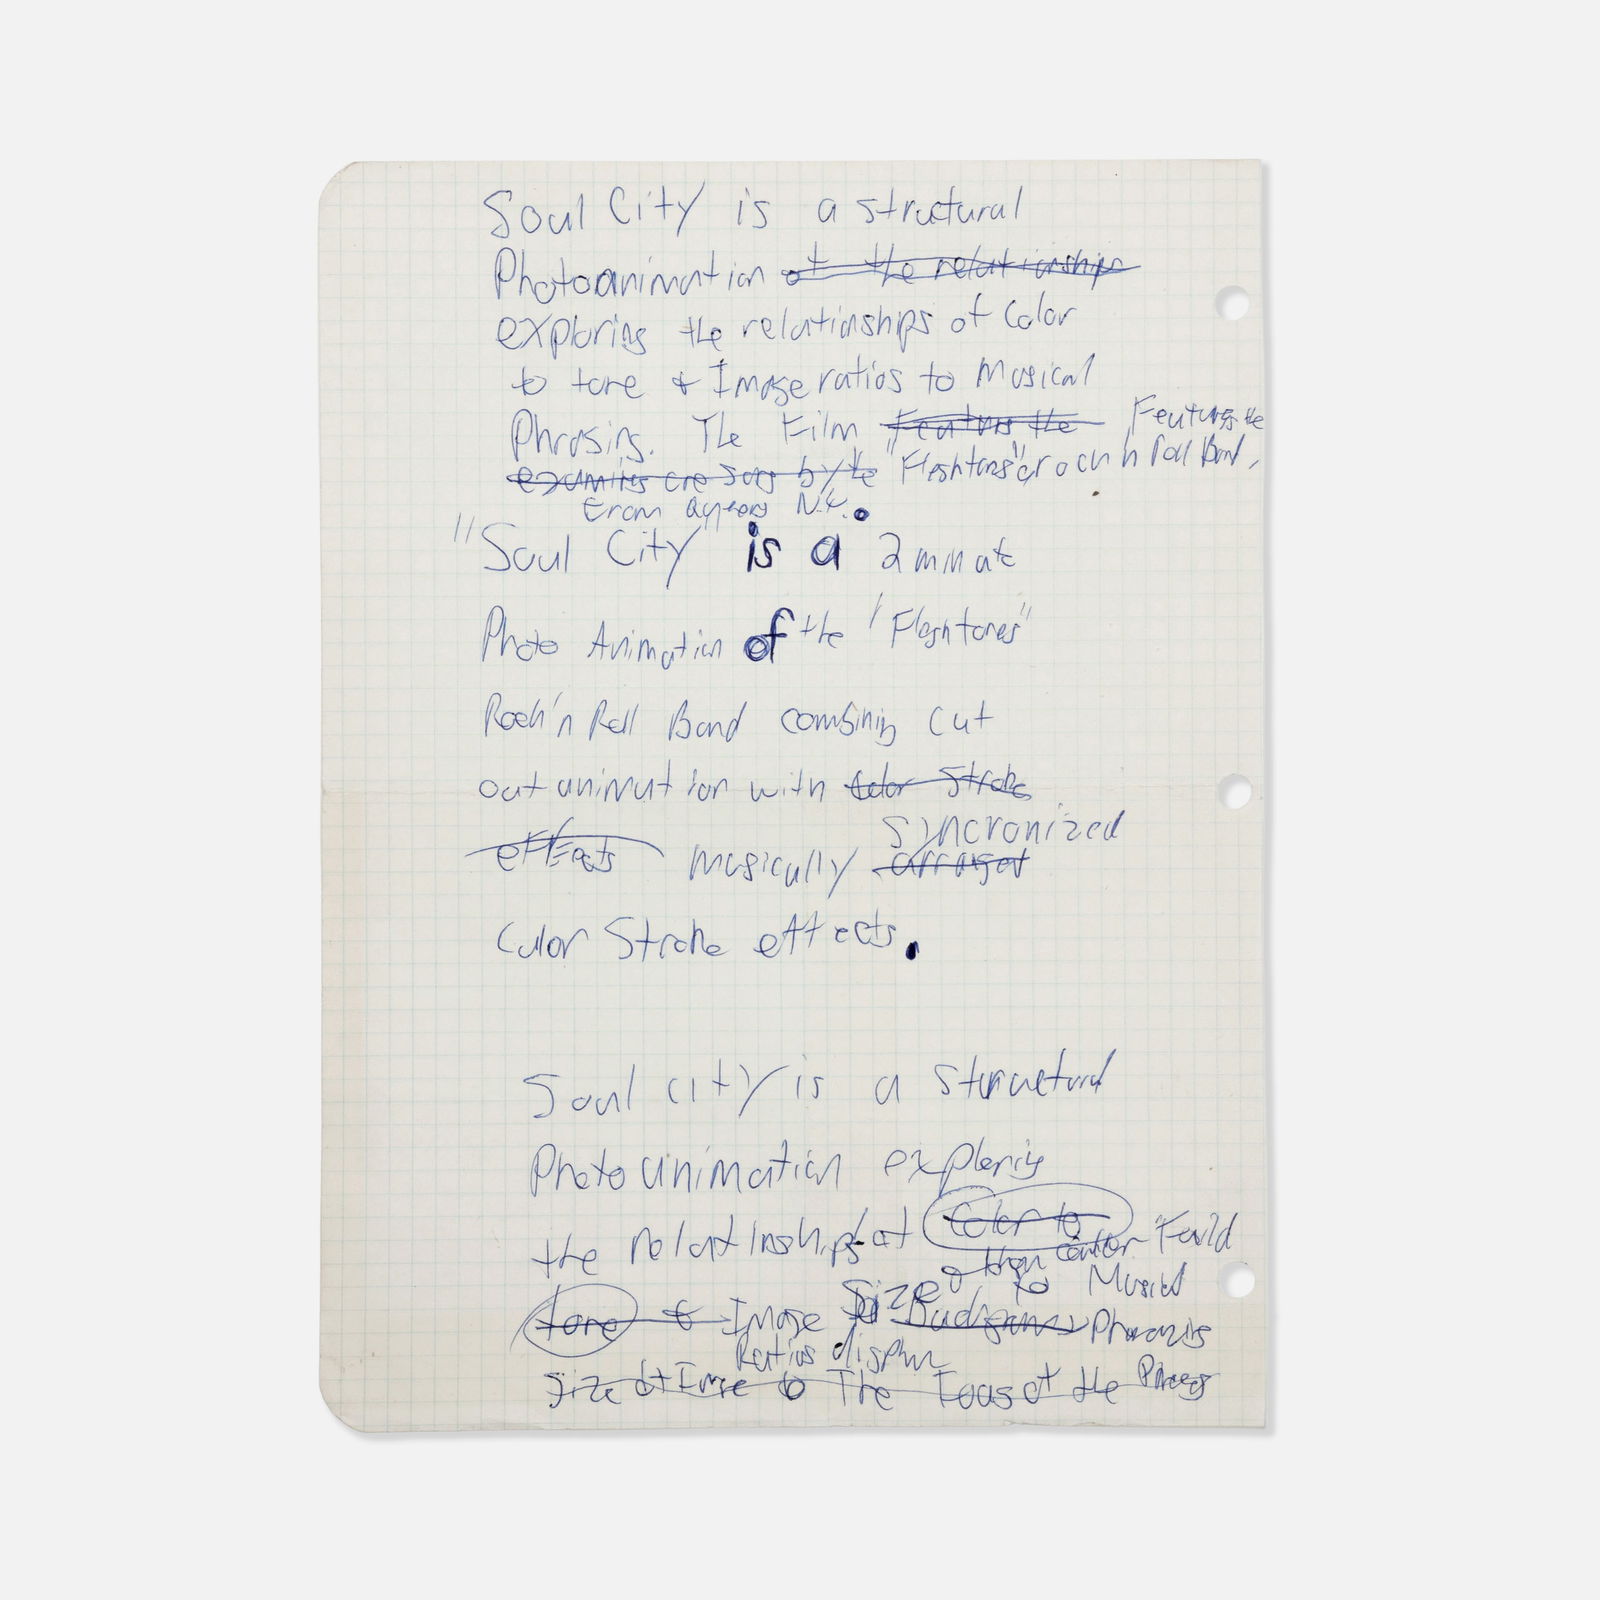 Soul City is a structural
Photoanimation of the relationship
exploring the relationships of Color
to tone & Image ratios to Musical
Phrasing. The Film Features the Features the
by the "Fleshtones" a rock n Roll Band,
From Queens N.Y.
"Soul City" is a 2 minute
Photo Animation of the "Fleshtones"
Rock'n Roll Band combining cut
out animation with Color Stroke
effects musically arranged
Syncronized
Color Stroke effects.
Soul City is a Structural
Photo animation exploring
the relationships of Color to
Feild
Size to Musical
tone & Image Phrasing
Ratios
Size of Image to The Focus of the